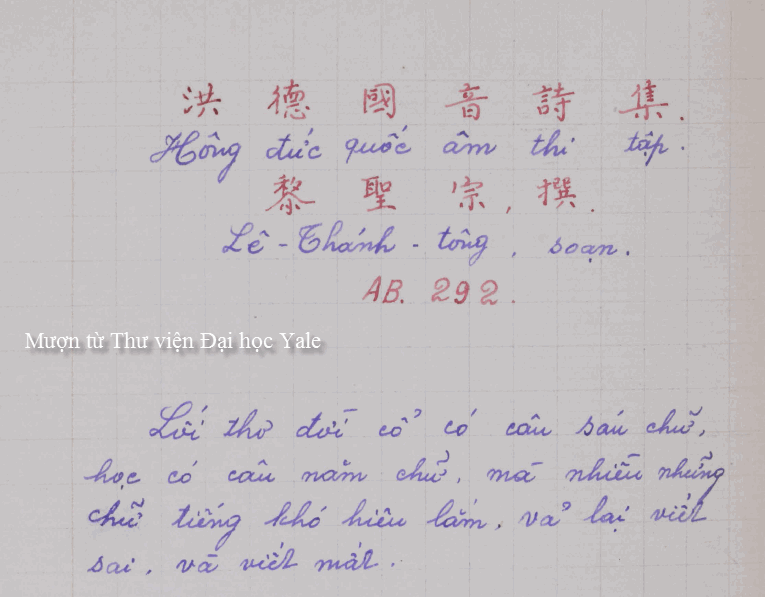 洪德國音詩集.
Hồng đức quốc âm thi tập.
黎聖宗, 撰.
Lê-Thánh-tông, soạn.
AB. 292.
Mượn từ Thư viện Đại học Yale
Lối thơ đời cổ có câu sáu chữ,
học có câu năm chữ, mà nhiều những
chữ tiếng khó hiêu lắm, vả lại viết
sai, và viết mất.